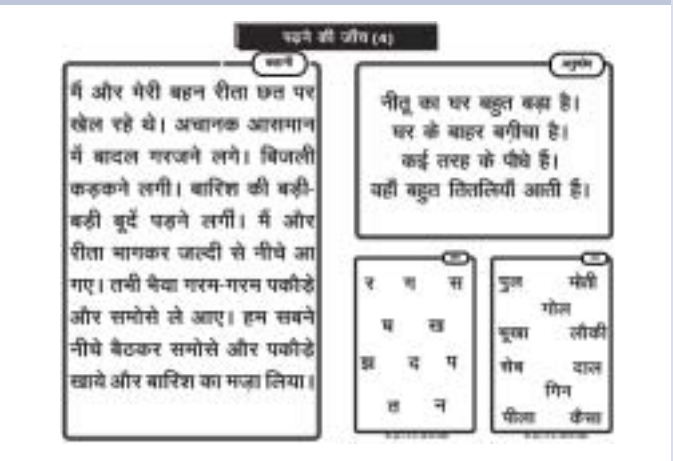 पढ़ने की जाँच (4)
कहानी
मैं और मेरी बहन रीता छत पर
खेल रहे थे। अचानक आसमान
में बादल गरजने लगे। बिजली
कड़कने लगी। बारिश की बड़ी-
बड़ी बूदें पड़ने लगीं। मैं और
रीता भागकर जल्दी से नीचे आ
गए। तभी भैया गरम-गरम पकौड़े
और समोसे ले आए। हम सबने
नीचे बैठकर समोसे और पकौड़े
खाये और बारिश का मज़ा लिया।
अनुच्छेद
नीतू का घर बहुत बड़ा है।
घर के बाहर बग़ीचा है।
कई तरह के पौधे हैं।
वहाँ बहुत तितलियाँ आती हैं।
र ग स
ख
झ द प
त न
पुल मोती
गोल
भूखा लौकी
दाल
गिन
पीला कैसा